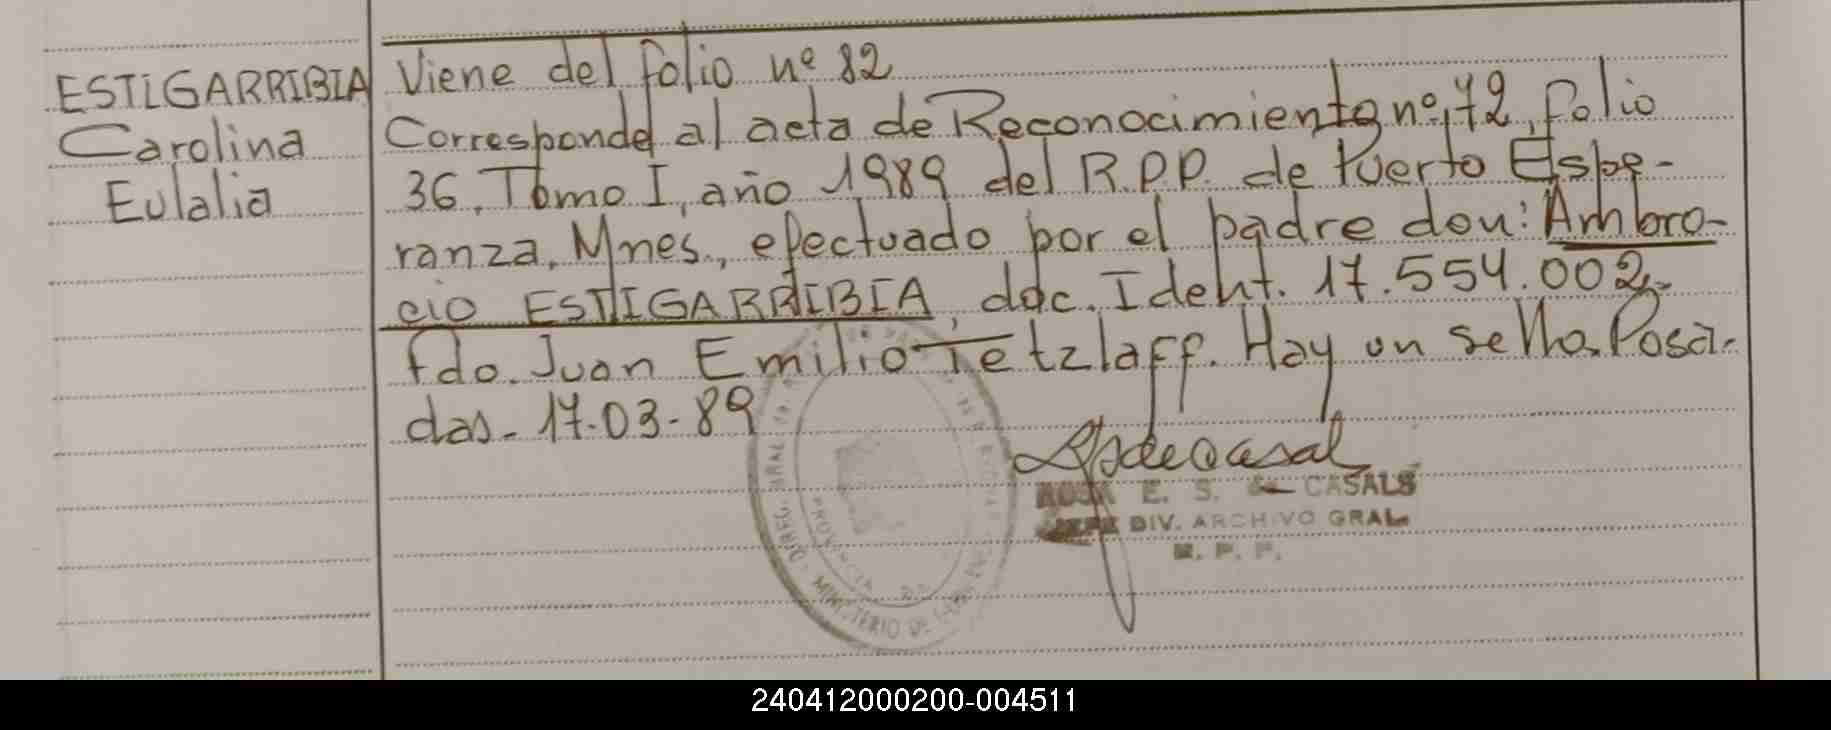 ESTIGARRIBIA
Carolina
Eulalia
Viene del folio nº 82
Corresponde al acta de Reconocimiento nº 72, folio
36, Tomo I, año 1989 del R.P.P. de Puerto Espe-
ranza, Mnes., efectuado por el padre don: Ambro-
cio ESTIGARRIBIA, doc. Ident. 17.554.002.
fdo. Juan Emilio Tetzlaff. Hay un sello. Posa-
das. 17-03-89
E. S. CASALS
JEFE DIV. ARCHIVO GRAL.
R. P. P.
PROVINCIA
MINISTERIO DE
240412000200-004511